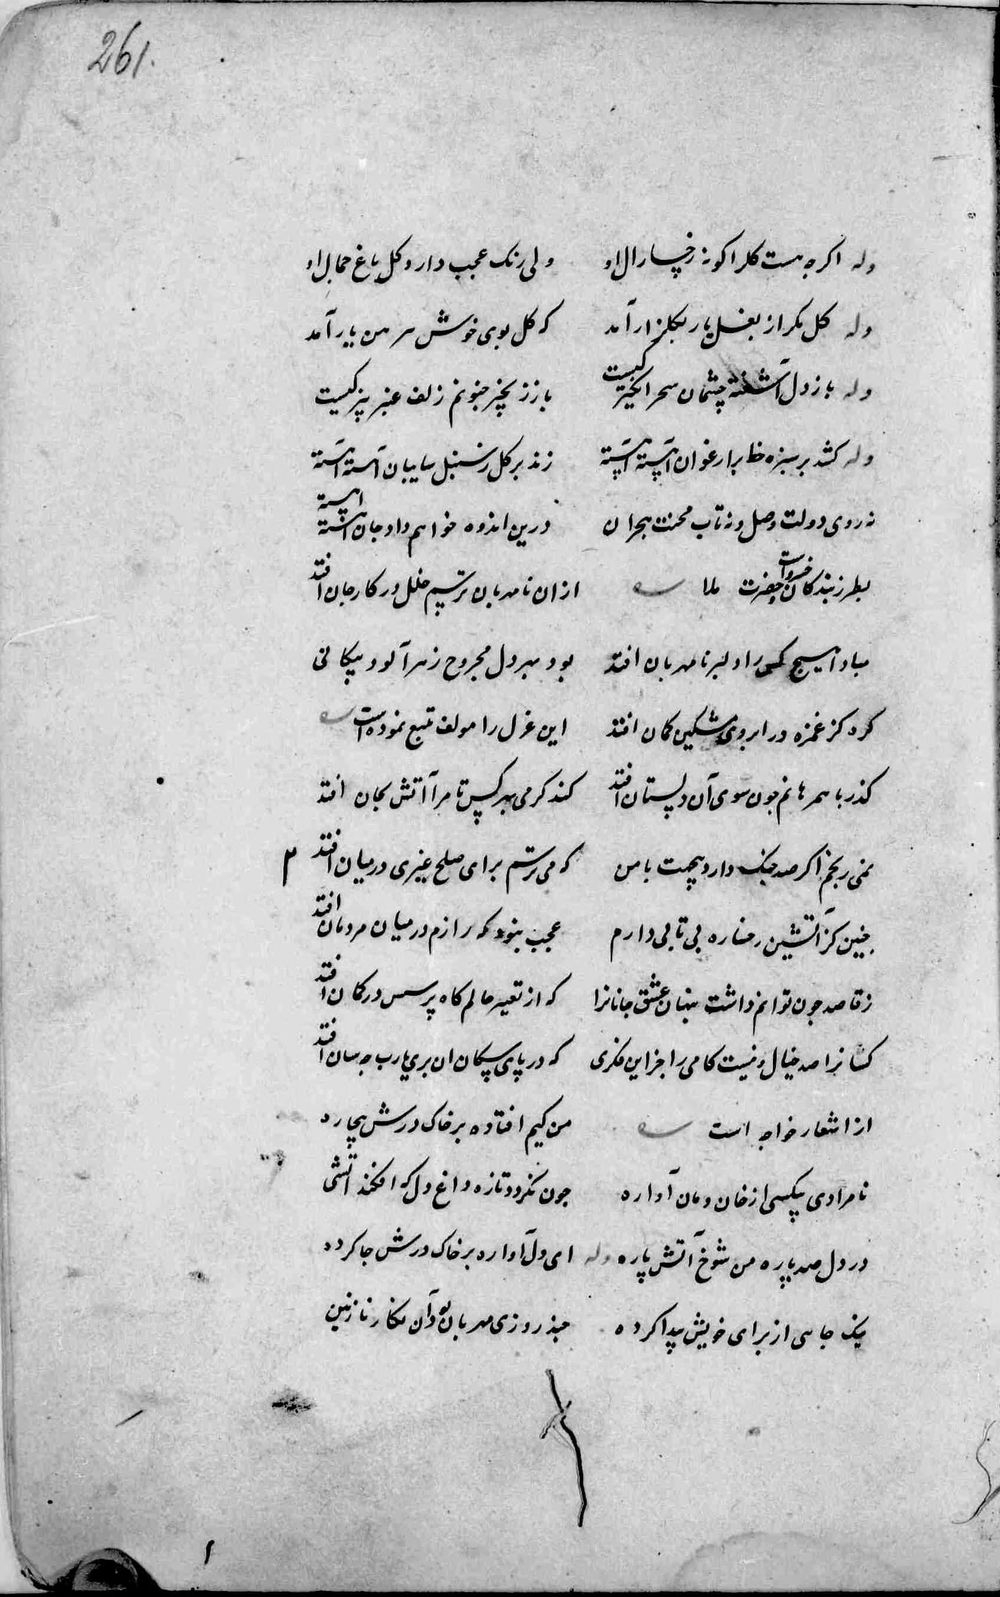 261.
وله اکرچه هست کلرا کونه رخسار ال او ولی رنک عجب دارد کل باغ جمال او
وله کل مکر از بغل یار بکلزار آمد که کل بوی خوش سر من یار آمد
وله باز دل آشفته چشمان سحر انکیز کیست باز زنجیر جنونم زلف عنبر بیز کیست
وله کشد بر سبزه خط بر ارغوان آهسته آهسته زند بر کل ز سنبل سایبان آهسته آهسته
نه روی دولت وصل و نه تاب محنت هجران درین اندوه خواهم داد جان آهسته آهسته
بطرز بندکان حضرت ملا خسرواست از ان نامهربان ترسم خلل در کار جان افتد
مباد هیچ کس را دلبر نامهربان افتد بود مهر دل مجروح زهر آلود پیکانی
کره کز غمزه در ابروی مشکین کمان افتد این غزل را مولف تتبع نموده است
کذر با همرهانم چون سوی آن دلستان افتد کند کرمی بهر کس تا مرا آتش بجان افتد
نمی رنجم اکر صد جنک دارد بیجهت با من که می ترسم برای صلح غیری درمیان افتد ۲
چنین کز آتشین رخساره بی تابی دارم عجب نبود که رازم در میان مردمان افتد
ز قاصد چون توانم داشت پنهان عشق جانانرا که از تغییر حالم کاه پرسش در کمان افتد
کسانرا صد خیال و نیست کامی را جز این فکری که در پای سکان ان پری یارب چه سان افتد
از اشعار خواجه است من کیم افتاده بر خاک درش بیچاره
نامرادی بیکسی از خان و مان آواره چون نکردد تازه داغ دل که افکند آتشی
در دل صد پاره من شوخ آتش پاره وله ای دل آواره بر خاک درش جا کرده
نیک جایی از برای خویش پیدا کرده چند روزی مهربان بود آن نکار نازنین
۱